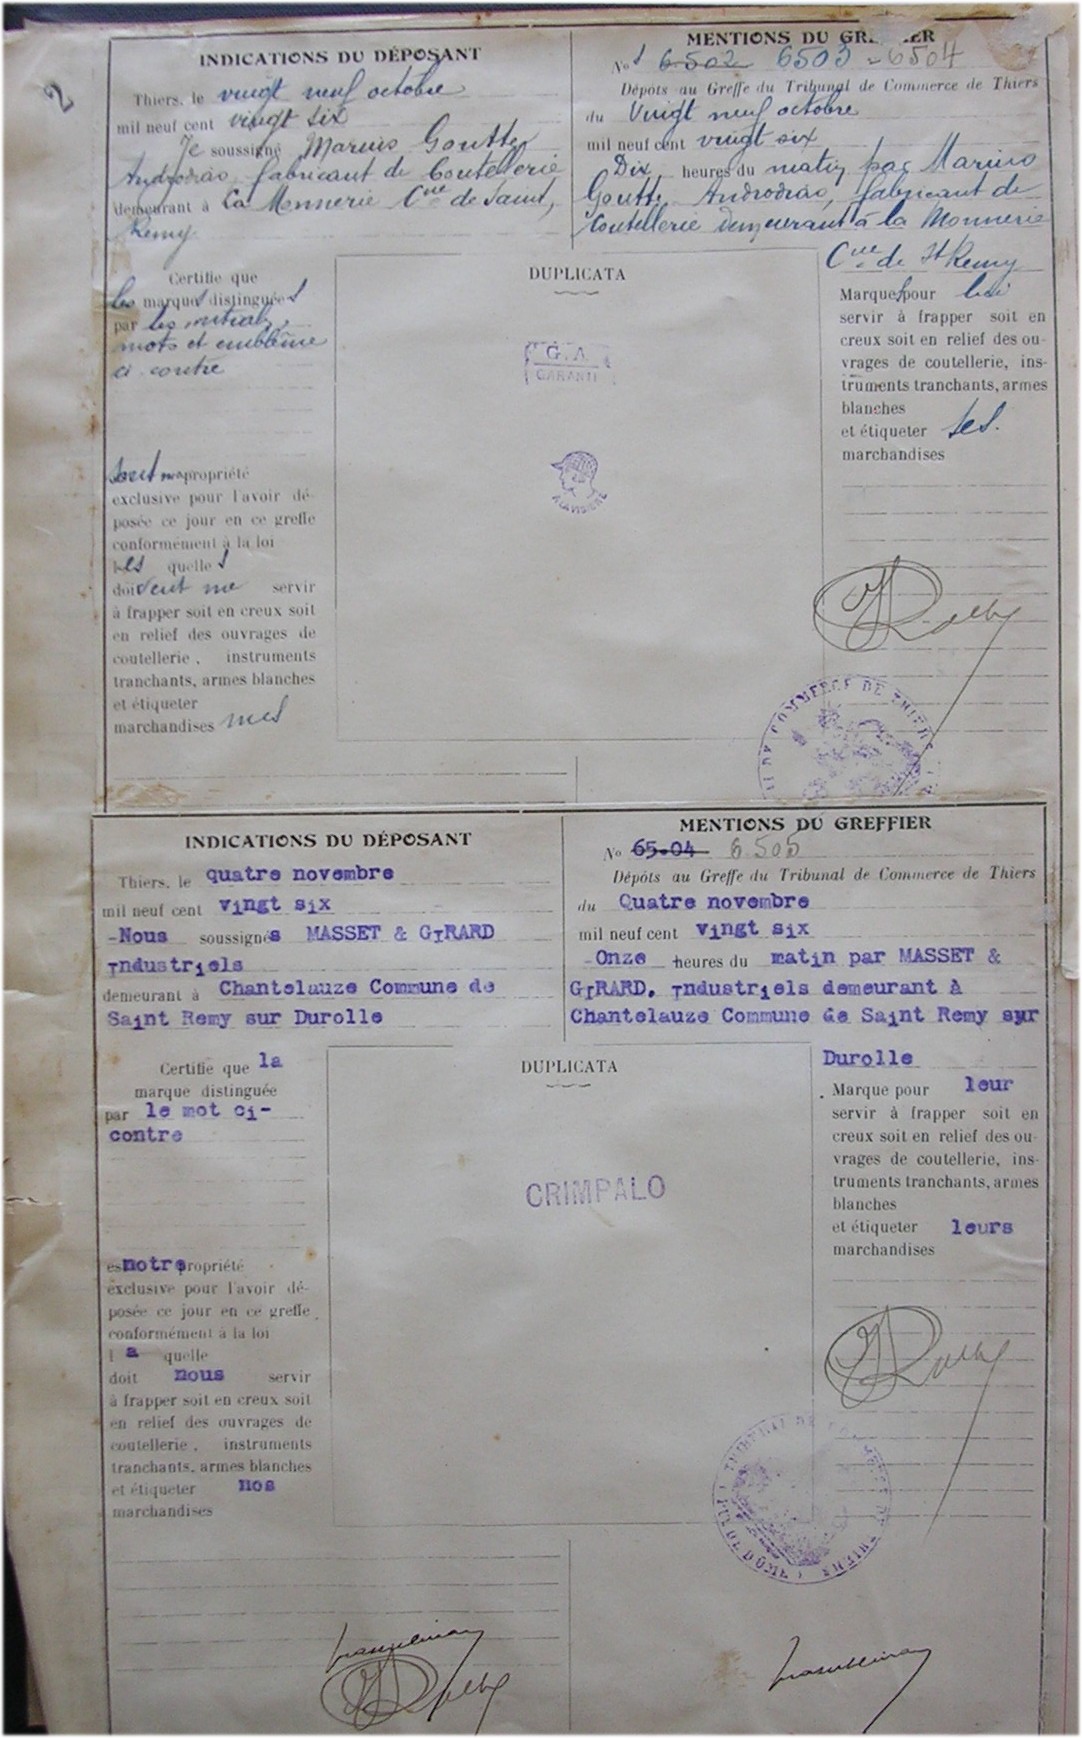 2
INDICATIONS DU DÉPOSANT
Thiers, le vingt neuf octobre
mil neuf cent vingt six
Je soussigné Marius Goutte
Androdias, fabricant de Coutellerie
demeurant à La Monnerie Cne de Saint,
Remy
Certifie que
les marques distinguées
par les initiales,
mots et emblème
ci-contre
sont ma propriété
exclusive pour l'avoir dé-
posée ce jour en ce greffe
conformément à la loi
les quelles
doivent me servir
à frapper soit en creux soit
en relief des ouvrages de
coutellerie, instruments
tranchants, armes blanches
et étiqueter
marchandises mes
DUPLICATA
G.A.
GARANTI
A LA VISIERE
MENTIONS DU GREFFIER
Nos 6502 6503-6504
Dépôts au Greffe du Tribunal de Commerce de Thiers
du Vingt neuf octobre
mil neuf cent vingt six
Dix heures du matin, par Marius
Goutte Androdias, fabricant de
Coutellerie demeurant à la Monnerie
Cne de St Remy
Marques pour lui
servir à frapper soit en
creux soit en relief des ou-
vrages de coutellerie, ins-
truments tranchants, armes
blanches
et étiqueter ses.
marchandises
COMMERCE DE THIERS
INDICATIONS DU DÉPOSANT
Thiers, le quatre novembre
mil neuf cent vingt six
-Nous soussignés MASSET & GIRARD
Industriels
demeurant à Chantelauze Commune de
Saint Remy sur Durolle
Certifie que la
marque distinguée
par le mot ci-
contre
es notre propriété
exclusive pour l'avoir dé-
posée ce jour en ce greffe
conformément à la loi
l a quelle
doit nous servir
à frapper soit en creux soit
en relief des ouvrages de
coutellerie, instruments
tranchants, armes blanches
et étiqueter nos
marchandises
DUPLICATA
CRIMPALO
MENTIONS DU GREFFIER
No 65-04 6.505
Dépôts au Greffe du Tribunal de Commerce de Thiers
du Quatre novembre
mil neuf cent vingt six
-Onze heures du matin par MASSET &
GIRARD, Industriels demeurant à
Chantelauze Commune de Saint Remy sur
Durolle
Marque pour leur
servir à frapper soit en
creux soit en relief des ou-
vrages de coutellerie, ins-
truments tranchants, armes
blanches
et étiqueter leurs
marchandises
TRIBUNAL DE COMMERCE DE THIERS
PUY DE DÔME